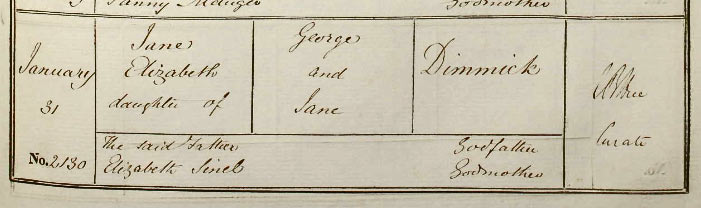 Fanny Godmother
Jane George
January Elizabeth and Dimmick
31 daughter of Jane
Curate
The said Father Godfather
No. 2130 Elizabeth Sinel Godmother